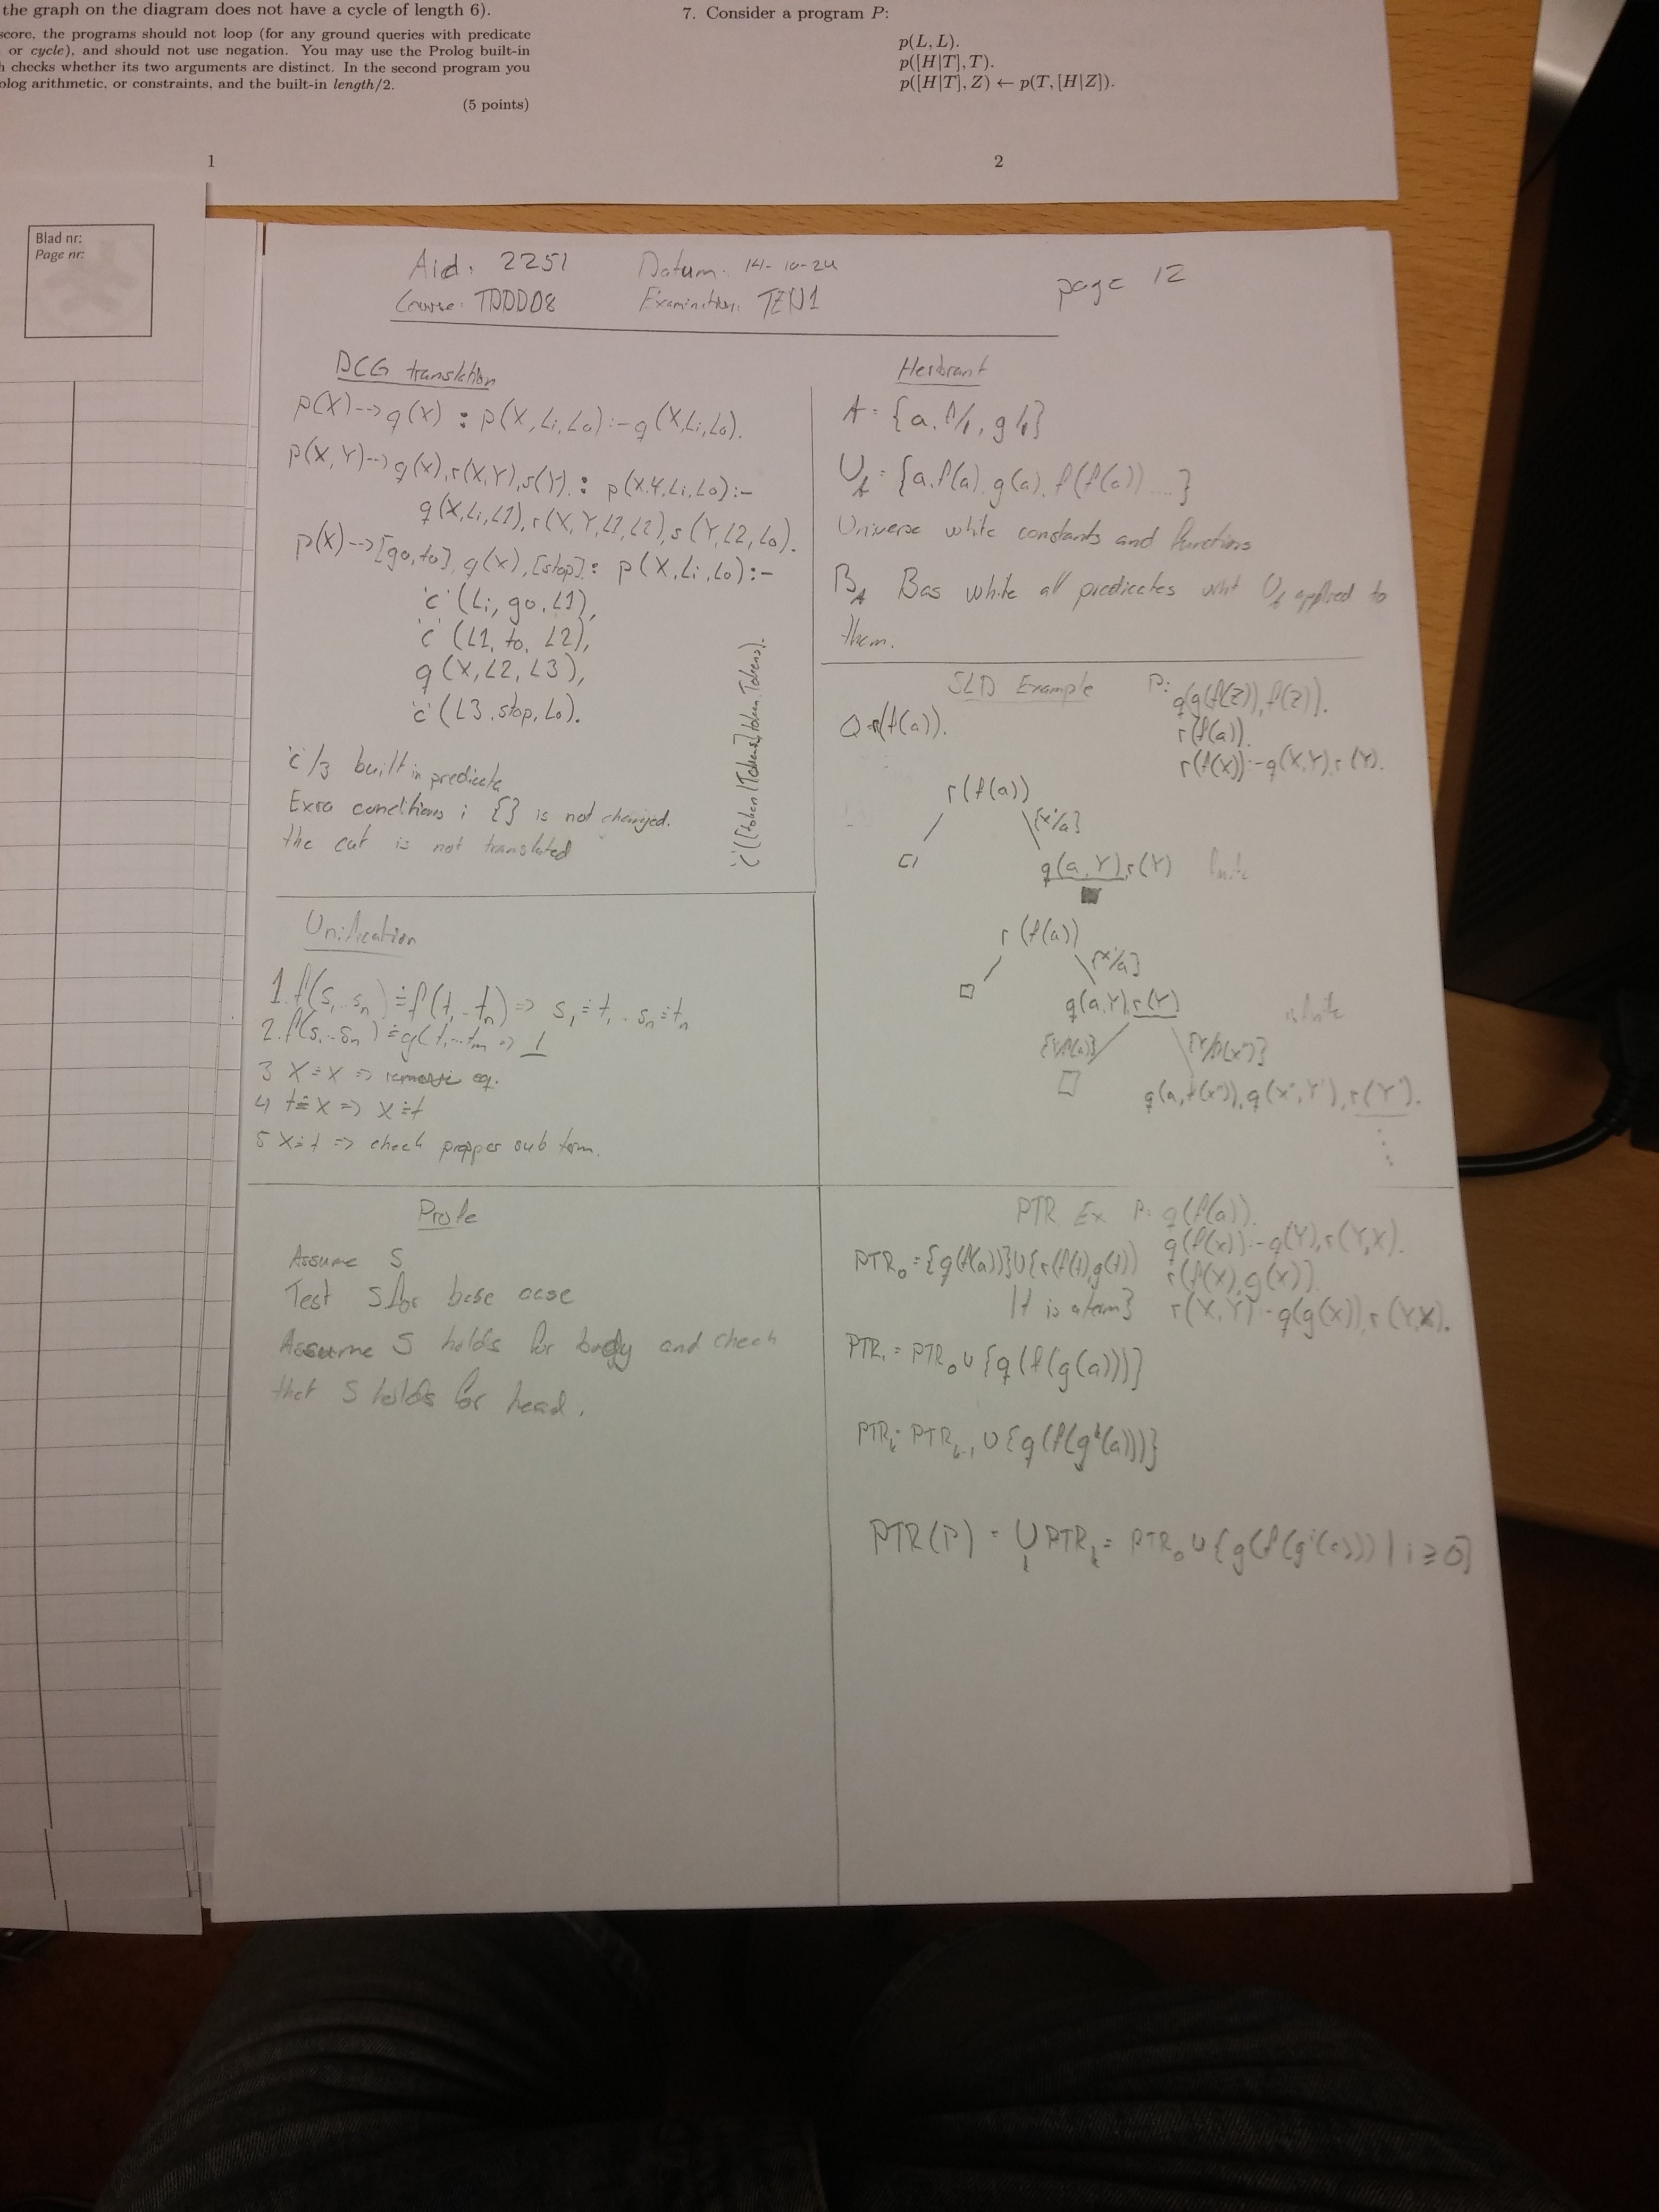 the graph on the diagram does not have a cycle of length 6).
score, the programs should not loop (for any ground queries with predicate
or cycle), and should not use negation. You may use the Prolog built-in
h checks whether its two arguments are distinct. In the second program you
olog arithmetic, or constraints, and the built-in length/2.
(5 points)
1
7. Consider a program P:
p(L, L).
p([H|T], T).
p([H|T], Z) ← p(T, [H|Z]).
2
Blad nr:
Page nr:
Aid: 2251 Datum: 14-10-24 page 12
Course: TDDD08 Examination: TEN1
DCG translation
p(X)-->q(x) : p(X,Li,Lo):-q(X,Li,Lo).
p(X,Y)-->q(x),r(X,Y),s(Y). : p(X,Y,Li,Lo):-
q(X,Li,L1),r(X,Y,L1,L2),s(Y,L2,Lo).
p(X)-->[go,to],q(x),[stop]: p(X,Li,Lo):-
'c'(Li, go, L1),
'c'(L1, to, L2),
q(X,L2,L3),
'c'(L3,stop,Lo).
'c'/3 built in predicate
Exra conditions i {} is not changed.
the cut is not translated
'c'([token|Tokens],token,Tokens).
Unification
1. f(s1..sn)≐f(t1..tn)=> s1≐t1..sn≐tn
2. f(s1..sn)≐g(t1..tm => ⊥
3 X≐X => remove eq.
4 t≐X => X≐t
5 X≐t => check propper sub term.
Profe
Assume S
Test S for base case
Assume S holds for body and check
that S holds for head.
Herbrant
A = {a, f/1, g/1}
UA = {a, f(a), g(a), f(f(a)) ....}
Universe white constants and functions
BA Bas white all predicates whit UA applied to
them.
SLD Example P: q(g(f(z)),f(z)).
Q r(f(a)). r(f(a)).
r(f(x)):-q(X,Y),r(Y).
r(f(a))
{x/a}
□ q(a,Y),r(Y) finite
r(f(a))
{x/a}
□ q(a,Y),r(Y) infinite
{Y/f(a)} {Y/f(x')}
□ q(a,f(x')),q(x',Y'),r(Y').
PTR Ex P: q(f(a)).
q(f(x)):-q(Y),r(Y,X).
PTR0={q(f(a))}∪{r(f(t),g(t)) r(f(X),g(x)).
|t is a term} r(X,Y):-q(g(x)),r(Y,X).
PTR1 = PTR0 ∪ {q(f(g(a)))}
PTRk = PTRk-1 ∪ {q(f(g^k(a)))}
PTR(P) = ∪ PTRk = PTR0 ∪ {q(f(g^i(a))) | i ≥ 0}